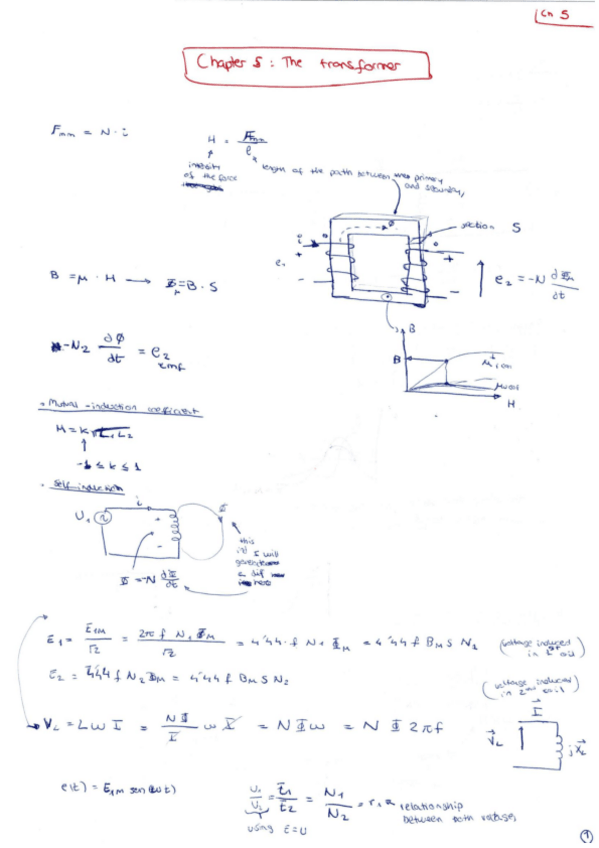 Ch 5
Chapter 5: The transformer
Fmm = N · i
H = Fmm / l
intensity of the force
length of the path between primary and secundary
section S
Φ
i
+
+
e₁
-
-
e₂ = -N dΦM/dt
B = μ · H → Φ = B · S
B
B
μ iron
H
-N₂ dΦ/dt = e₂
emf
· Mutual-induction coefficient
M = k √L₁L₂
-1 ≤ k ≤ 1
· Self-induction
i
U₁
+
-
Φ
this
will
E = -N dΦ/dt
E₁ = E₁M/√2 = 2π f N₁ ΦM/√2 = 4'44 · f N₁ ΦM = 4'44 f BM S N₂ (voltage induced in 1st coil)
E₂ = 4'44 f N₂ ΦM = 4'44 f BM S N₂ (voltage induced in 2nd coil)
VL = L ω I = NΦ/I ω I = N Φ ω = N Φ 2π f
I
VL
jXL
e(t) = E₁M sen(ωt)
U₁/U₂ = E₁/E₂ = N₁/N₂ = relationship between both voltages
using E=U
1